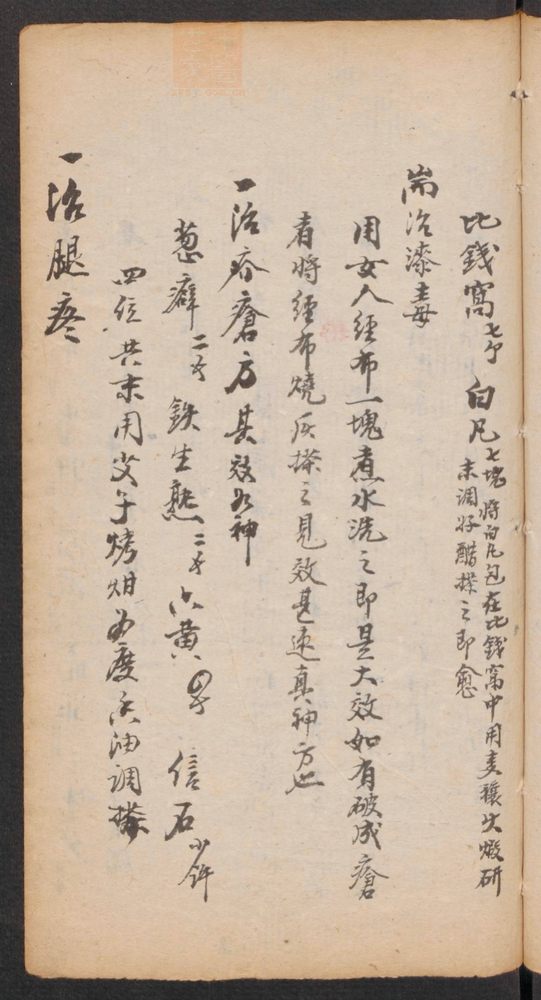 比錢窩七个 白凡七塊 將白凡包在比錢窩中用麦穰火煅研
末調好醋搽之即愈
耑治漆毒
用女人經布一塊煮水洗之即是大效如有破成瘡
者將經布燒灰搽之見效甚速真神方也
一治疥瘡方其效如神
葱癖二 鉄生熟二 六黄 信石少許
四位共末用艾子烤烟为度香油調搽
一治腿疼